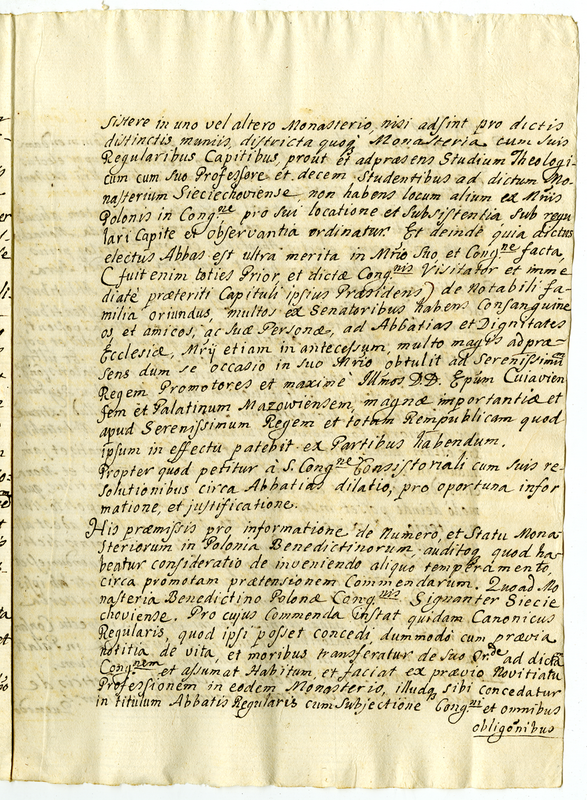 sistere in uno vel altero Monasterio, nisi adsint pro dictis
distinctis muniis, districta quoq Monasteria cum suis
Regularibus Capitibus, prout et ad præsens Studium Theologi-
cum cum suo Professore et decem Studentibus ad dictum Mo-
nasterium Sieciechoviense, non habens locum alium ex Mriis
Polonis in Congne pro sui locatione et subsistentia sub regu
lari Capite et observantia ordinatur. Et deinde quia dictus
electus Abbas est ultra merita in Mrio suo, et Congne facta,
(fuit enim toties Prior, et dictæ Congnis Visitator et imme
diatè præteriti Capituli ipsius Præsidens) de Notabili fa-
milia oriundus, multos ex Senatoribus habens Consanguine
os et amicos, ac suæ Personæ, ad Abbatias et Dignitates
Ecclesiæ, Mrij etiam in antecessum, multo magis ad præ-
sens dum se occasio in suo Mrio obtulit ad Serenissimum
Regem Promotores et maxime Illmos DD. Epum Cujavien
sem et Palatinum Mazowiensem, magnæ importantiæ et
apud Serenissimum Regem et totam Rempublicam quod
ipsum in effectu patebit ex Partibus habendum.
Propter quod petitur à S. Congne Consistoriali cum suis re-
solutionibus circa Abbatias dilatio, pro oportuna infor
matione, et justificatione.
His præmissis pro informatione de Numero, et Statu Mona-
steriorum in Polonia Benedictinorum, auditoq quod ha-
beatur consideratio de inveniendo aliquo temperamento
circa promotam prætensionem Commendarum. Quoad Mo
nasteria Benedictino Polonæ Congnis Signanter Siecie
choviense. Pro cujus Commenda instat quidam Canonicus
Regularis, quod ipsi posset concedi, dummodò cum prævia
notitia de vita, et moribus transferatur de suo Orde ad dictã
Congnem et assumat Habitum, et faciat ex prævio Novitiatu
Professionem in eodem Monasterio, illudq sibi concedatur
in titulum Abbatis Regularis cum Subjectione Congni et omnibus
obligonibus